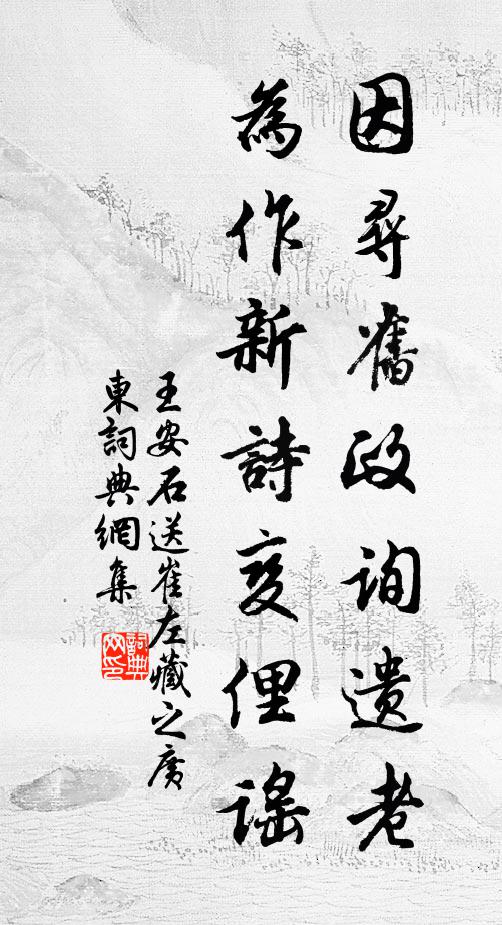 因尋舊政詢遺老
為作新詩變俚謠
王安石送崔左藏之廣
東詞典網集
詞典
网印